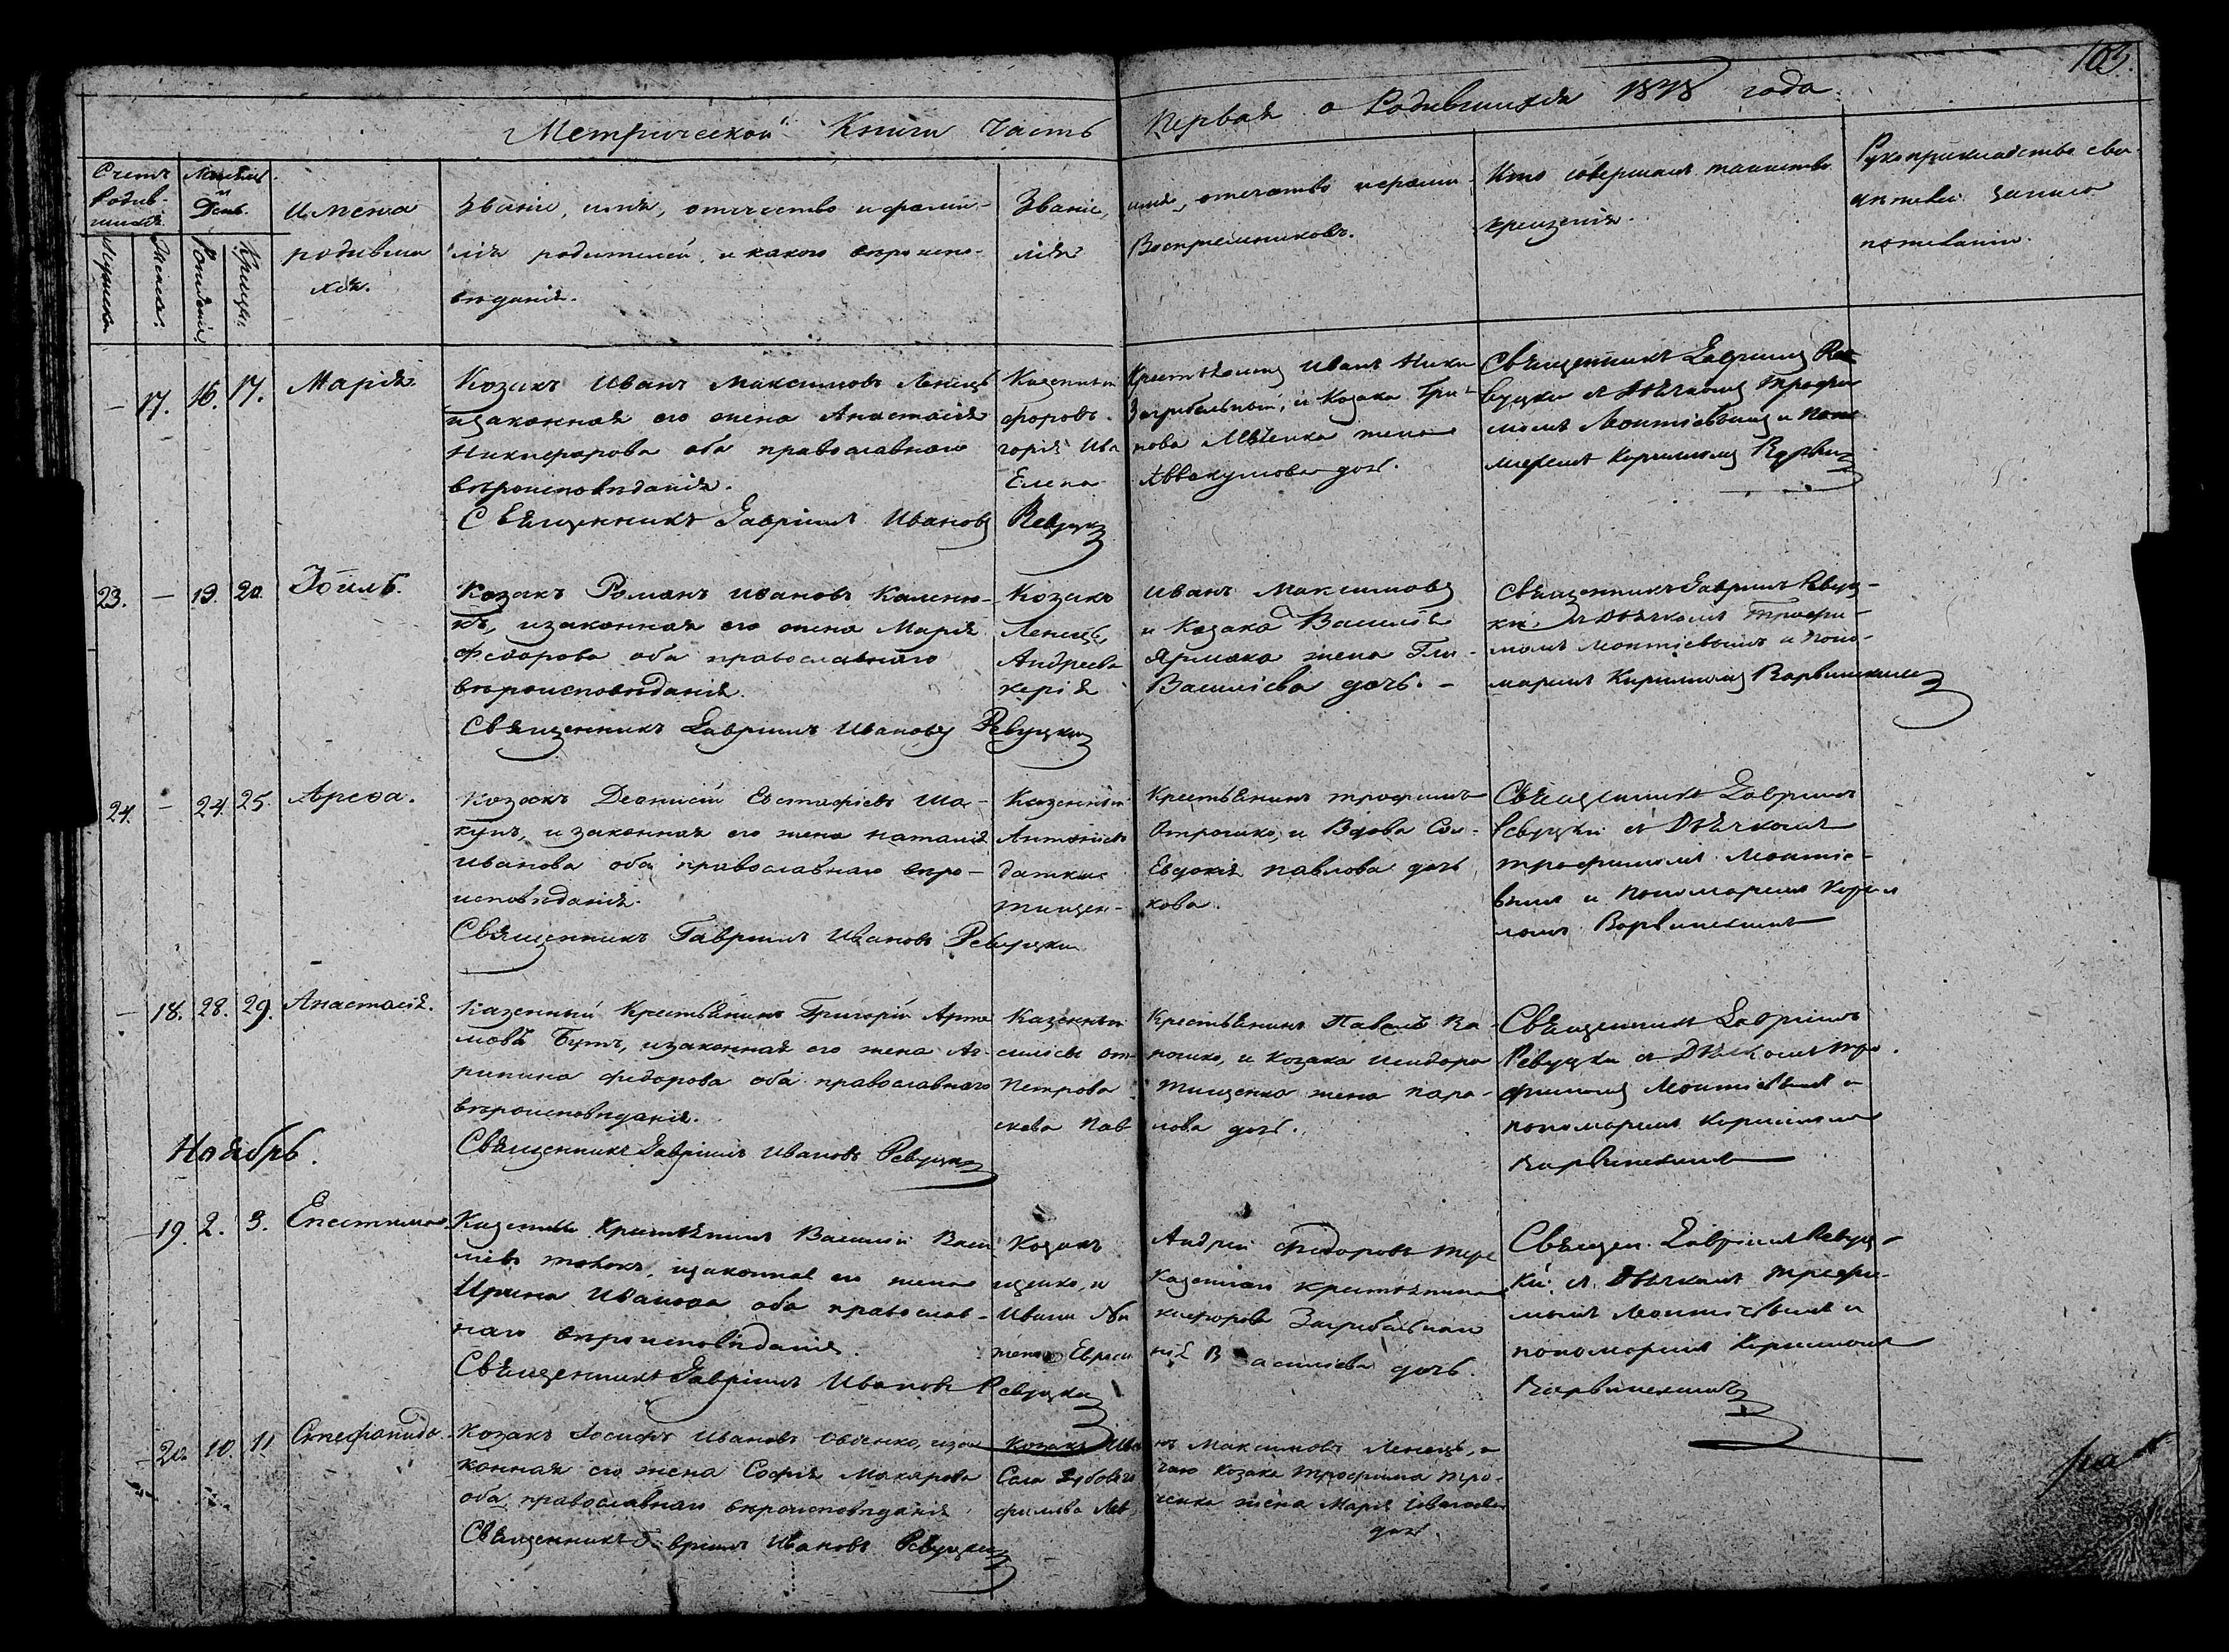 103.
Метрической Книги Часть первая о Родившихся 1878 года.
Счетъ Родив-шихся
Мужеска
Женска.
Мѣсяцъ и День.
Рожденія.
Крещен.
Имена
родивши
хся.
Званіе, имя, отчество и фами-
лія родителей, и какого вѣроиспо-
вѣданія.
Званіе, имя, отчество и фами-
лія Воспріемниковъ.
Кто совершалъ таинство
крещенія.
Рукоприкладство сви-
записи
по желанію.
– 17. 16. 17. Марія
Козакъ Иванъ Максимовъ Ленецъ
и законная его жена Анастасія
Никифорова оба православнаго
вѣроисповѣданія.
Священникъ Гавріилъ Ивановъ Ревуцкій
Казенный Крестьянинъ Иванъ Ники
форовъ Загребельный, и Козака Гри-
горія Ива нова жена
Елена Аввакумова доч.
Священникъ Гавріилъ Ре
вуцкій съ Дьячкомъ Трофи
момъ Леонтіевымъ и Поно
маремъ Кирилломъ
23. – 19. 20. Іоиль.
Козакъ Романъ Ивановъ Каленю-
къ, и законная его жена Марія
Федорова оба православнаго
вѣроисповѣданія.
Священникъ Гавріилъ Ивановъ Ревуцкій
Козакъ Иванъ Максимовъ
Ленецъ, и Козака Василія
Андреева Ярмака жена Гли-
керія Василіева дочь. –
Священникъ Гавріилъ Ревуц-
кій съ Дьячкомъ Трофи-
момъ Леонтіевымъ и Поно-
маремъ Кирилломъ Варвинскимъ
24. – 24. 25. Арефа.
Козакъ Деонисій Евстафіевъ Ша-
купъ, и законная его жена Наталія
Иванова оба православнаго вѣро-
исповѣданія.
Священникъ Гавріилъ Ивановъ Ревуцкій
Казенный Крестьянинъ Трофимъ
Антоніевъ Отрошко, и Вдова Сол-
датка Евдокія Павлова дочь
Тищен- кова.
Священникъ Гавріилъ
Ревуцкій съ Дьячкомъ
Трофимомъ Леонтіе-
вымъ и Пономаремъ Кирил
ломъ Варвинскимъ
– 18. 28. 29. Анастасія.
Казенный Крестьянинъ Григорій Арте
мовъ Бутъ, и законная его жена Аг-
рипина Федорова оба православнаго
вѣроисповѣданія.
Священникъ Гавріилъ Ивановъ Ревуцкій
Казенный Крестьянинъ Павелъ Ва
силіевъ От- рошко, и Козака Исидора
Петрова Тищенка жена Пара-
скева Пав лова дочь.
Священникъ Гавріилъ
Ревуцкій съ Дьячкомъ Тро
фимомъ Леонтіевымъ и
пономаремъ Кирилломъ
Варвинскимъ
Ноябрь.
– 19. 2. 3. Епистимія.
Казенный Крестьянинъ Василій Васи
ліевъ и законная его жена
Ирина Иванова оба православ-
наго вѣроисповѣданія.
Священникъ Гавріилъ Ивановъ Ревуцкій
Козакъ Андрей Федоровъ Тере
щенко, и казеннаго крестьянина
Ивана Ни кифорова Загребельнаго
жена Евфроси нія Василіева дочь.
Священ. Гавріилъ Ревуц-
кій съ Дьячкомъ Трофи-
момъ Леонтіевымъ и
пономаремъ Кирилломъ
Варвинскимъ
– 20. 10. 11. Стефанида.
Козакъ Іосифъ Ивановъ Овсенко, и за
конная его жена Софія Макарова
оба православнаго вѣроисповѣданія
Священникъ Гавріилъ Ивановъ Ревуцкій
Козакъ Ива нъ Максимовъ Ленецъ, и
Села козака Трофима Тро-
фимова жена Марія Иванова
доч.